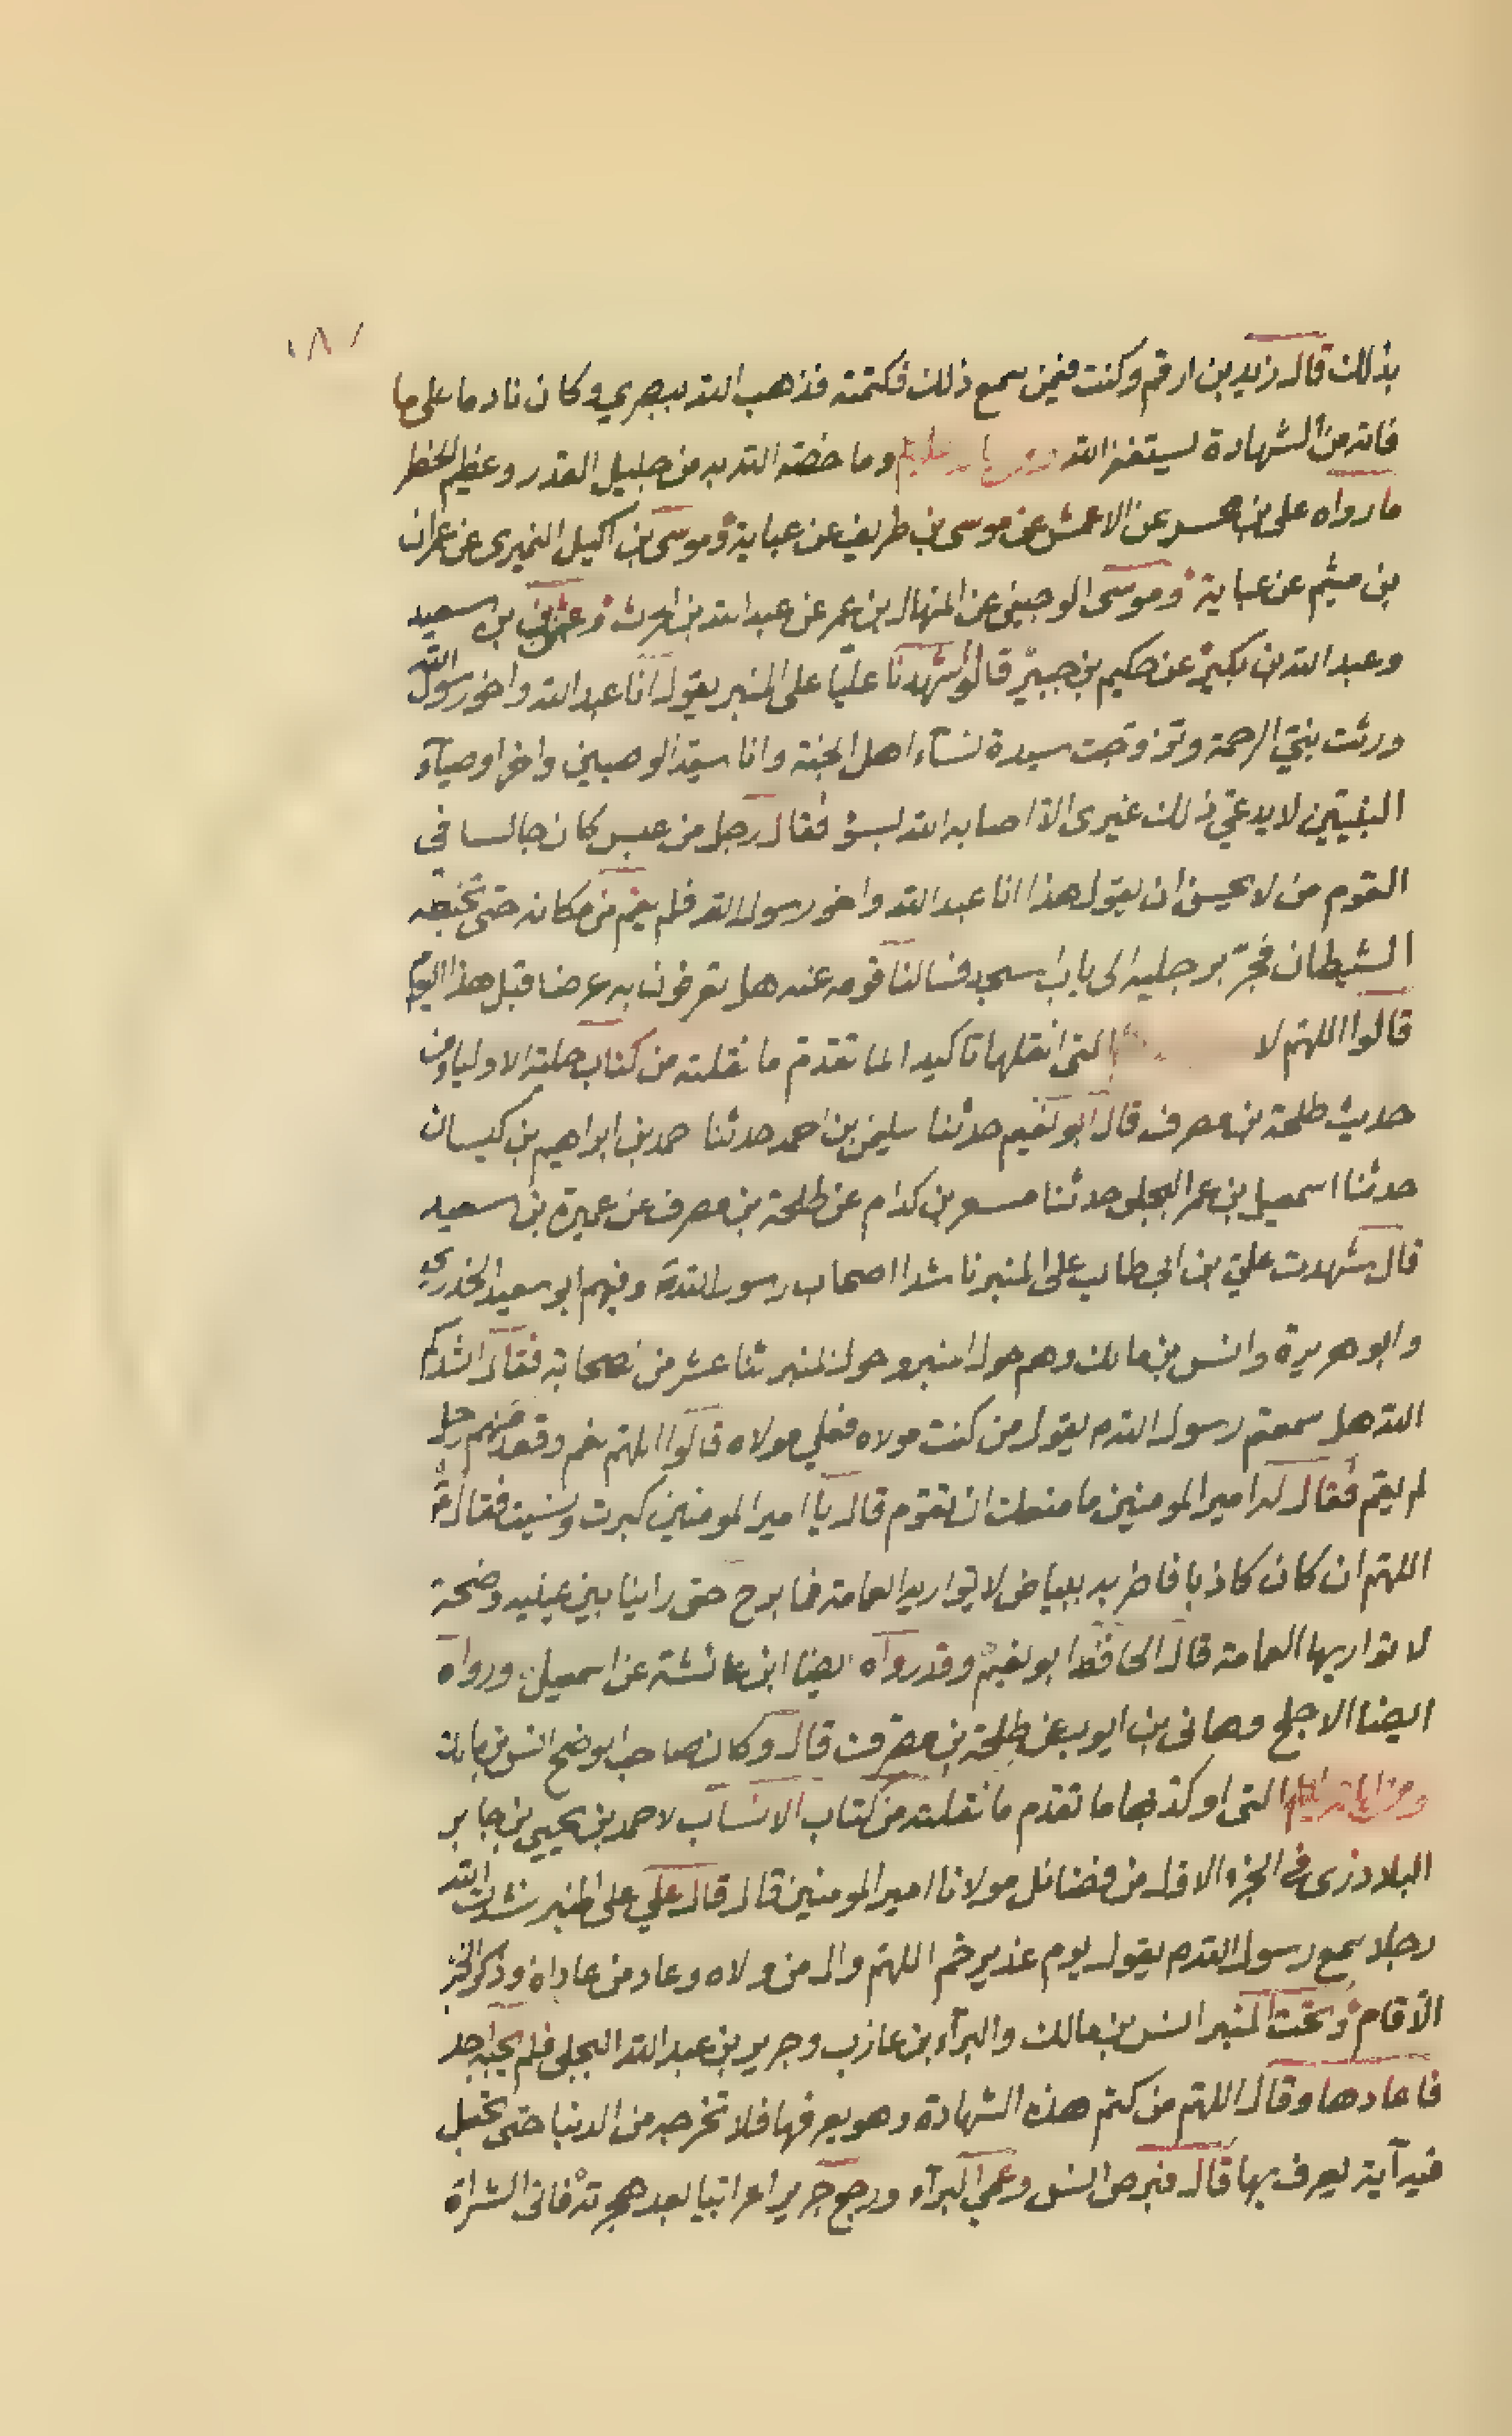 ١٨١
بذلك قال زيد بن ارقم وكنت فيمن سمع ذلك فكتمته فذهب الله ببصري وكان نادما على ما
فاته من الشهادة ليستغفر الله وما خصّه الله به من جليل القدر وعظيم الخطر
ما رواه علي بن مسهر عن الاعمش عن موسى بن طريف عن عباية وموسى بن اكيل النميرى عن عمران
بن ميثم عن عباية وموسى الوجيهي عن المنهال بن عمر عن عبد الله بن الحرث و بن سعيد
وعبد الله بن بكير عن حكيم بن جبير قالوا شهدنا عليّا على المنبر يقول انا عبد الله واخو رسول الله
ورثت بنيّ الرحمة وتزوّجت سيدة نسآء اهل الجنة وانا سيّد الوصيين واخر اوصيآء
النبيّين لا يدعي ذلك غيرى الّا اصابه الله بسوء فقال رجل من عبس كان جالسا في
القوم من لا يحسن ان يقول هذا انا عبد الله واخو رسول الله فلم يقم من مكانه حتى تخبطه
الشيطان فجرّ برجليه الى باب المسجد فسالنا قومه عنه هل تعرفون به عرضا قبل هذا اليوم
قالوا اللهمّ لا التى انقلها تاكيدا لما تقدّم ما نقلته من كتاب حلية الاولياء من
حديث طلحة بن مصرف قال ابو نعيم حدثنا سليمن بن احمد حدثنا احمد بن ابراهيم بن كيسان
حدثنا اسمعيل بن عمر البجلى حدثنا مسعر بن كدام عن طلحة بن مصرف عن عميرة بن سعيد
قال شهدت عليّ بن ابي طالب على المنبر ناشدا اصحاب رسول الله وفيهم ابو سعيد الخدري
وابو هريرة وانس بن مالك وهم حول المنبر وحول المنبر اثنا عشر من اصحابه فقال انشدكم
الله هل سمعتم رسول الله م يقول من كنت مولاه فعلي مولاه قالوا اللهم نعم وقعد منهم رجل
لم يقم فقال له امير المومنين ما منعك ان تقوم قال يا امير المومنين كبرت ونسيت فقال
اللهمّ ان كان كاذبا فاضربه ببياض لا تواريه العمامة فما برح حتى راينا بين عينيه وضحة
لا تواريها العمامة قال الحافظ ابو نعيم وقد رواه ايضا ابن عائشة عن اسمعيل ورواه
ايضا الاجلح وهانى بن ايوب عن طلحة بن مصرف قال وكان صاحب الوضح انس بن مالك
التى اوكد بها ما تقدم ما نقلته من كتاب الانساب لاحمد بن يحيى بن جابر
البلاذرى في الجزء الاول من فضائل مولانا امير المومنين قال قال علي على المنبر نشدت الله
رجلا سمع رسول الله م يقول يوم غدير خم اللهم وال من والاه وعاد من عاداه وذكر الخبر
الّا قام وتحت المنبر انس بن مالك والبرآء بن عازب وجرير بن عبد الله البجلى فلم يجبه احد
فاعادها وقال اللهم من كتم هذه الشهادة وهو يعرفها فلا تخرجه من الدنيا حتى تجعل
فيه آية يعرف بها قال فبرص انس وعمي البرآء ورجع جرير اعرابيا بعد هجرته فاتى الشراة